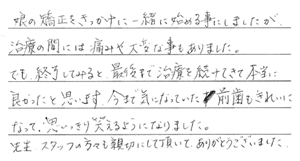 娘の矯正をきっかけに一緒に始める事にしましたが、
治療の間には痛みや大変な事もありました。
でも、終了してみると、最後まで治療を続けてきて本当に
良かったと思います。今まで気になっていた前歯もきれいに
なって、思いっきり笑えるようになりました。
先生、スタッフの方々も親切にして頂いて、ありがとうございました。